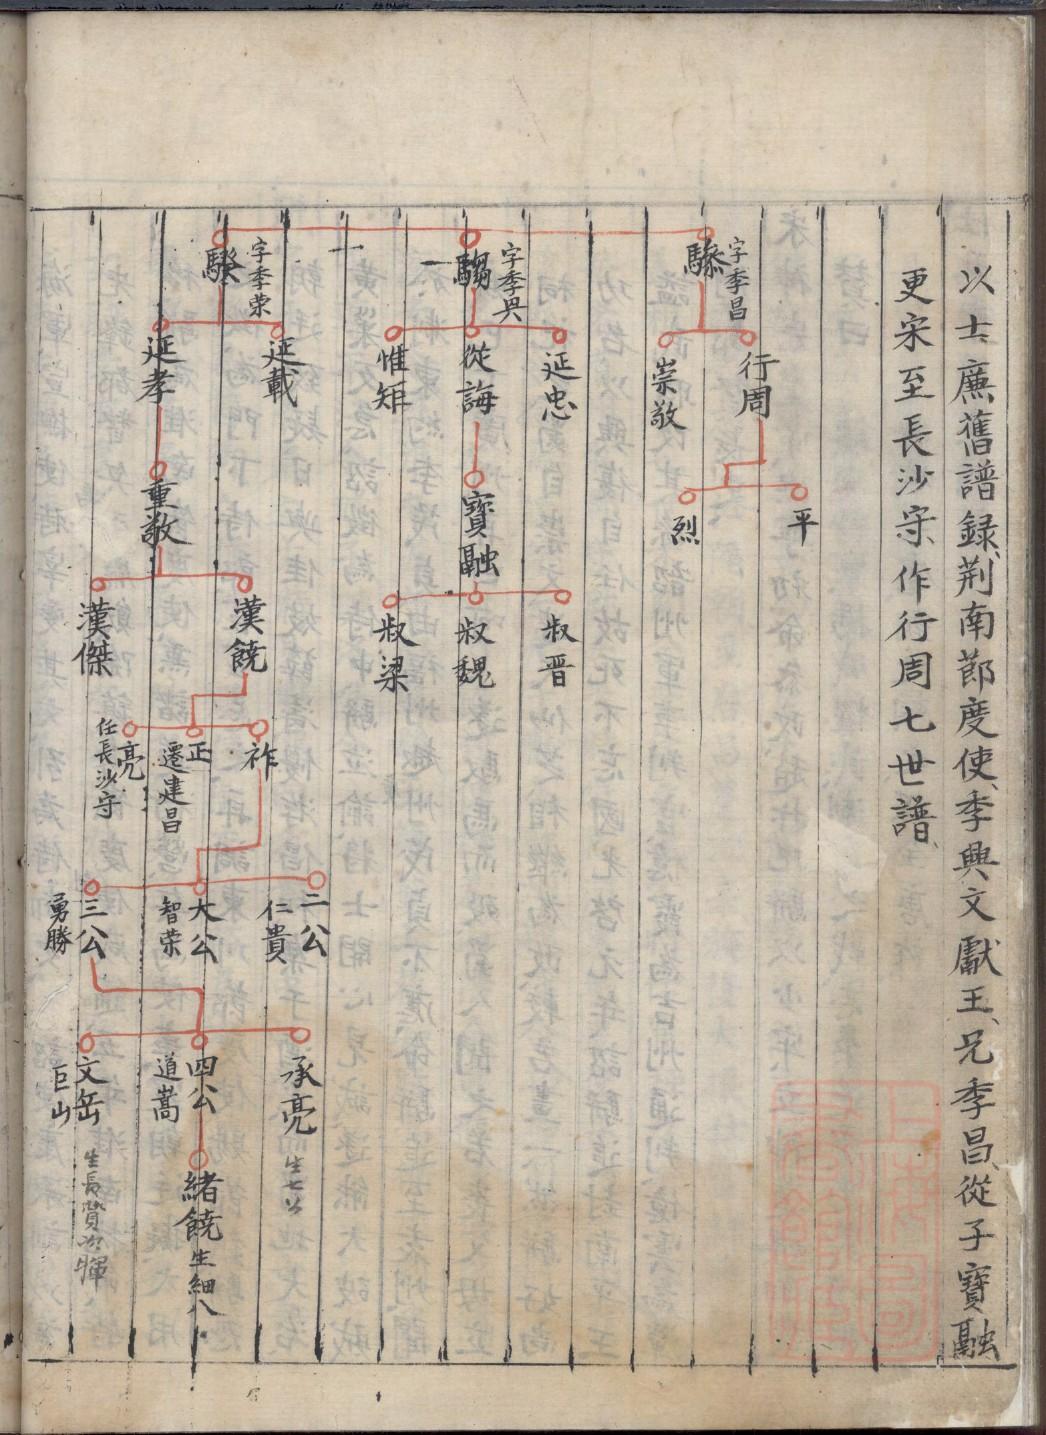 以士廉舊譜録、荆南節度使、季興文獻王、兄季昌、從子寶融
更宋至長沙守作行周七世譜、
字季昌
行周
崇敬
平
烈
字季興
延忠
從誨
惟矩
寶融
叔晋
叔魏
叔梁
字季荣
延載
延孝
重敬
漢饒
漢傑
祚
正
遷建昌
亮
任長沙守
二公
仁貴
大公
智荣
三公
勇勝
承亮
生七公
四公
道嵩
文岳
巨山
生長贊次暉
緒饒生細八